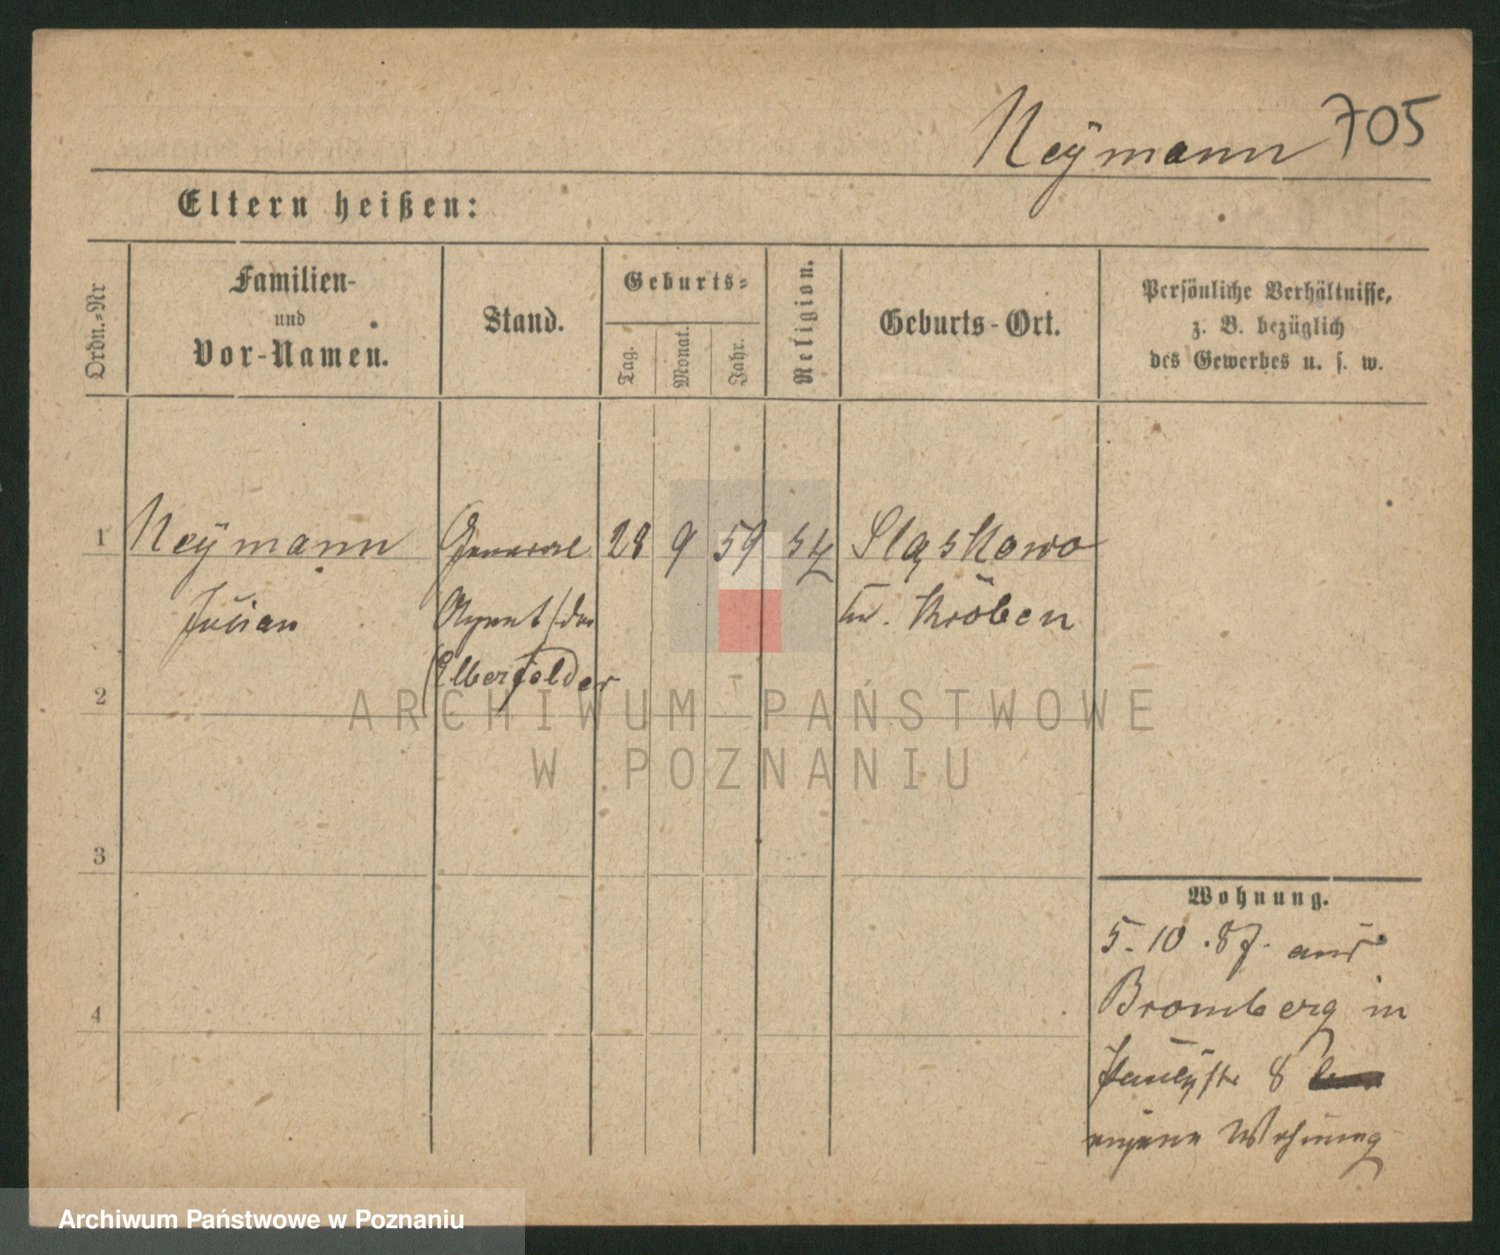 Neÿmann 705
Eltern heißen:
Ordn.-Nr
Familien-
und
Vor-Namen.
Stand.
Geburts-
Tag.
Monat.
Jahr.
Religion.
Geburts-Ort.
Persönliche Verhältnisse,
z. B. bezüglich
des Gewerbes u. s. w.
1 Neÿmann General 28 9 59 Sląskowo
Julian Agent der Kr. Kröben
Elberfelder
2
3
4
Wohnung.
5.10.87. aus
Bromberg in
Paulystr 8
eigene Wohnung
ARCHIWUM PAŃSTWOWE
W POZNANIU
Archiwum Państwowe w Poznaniu